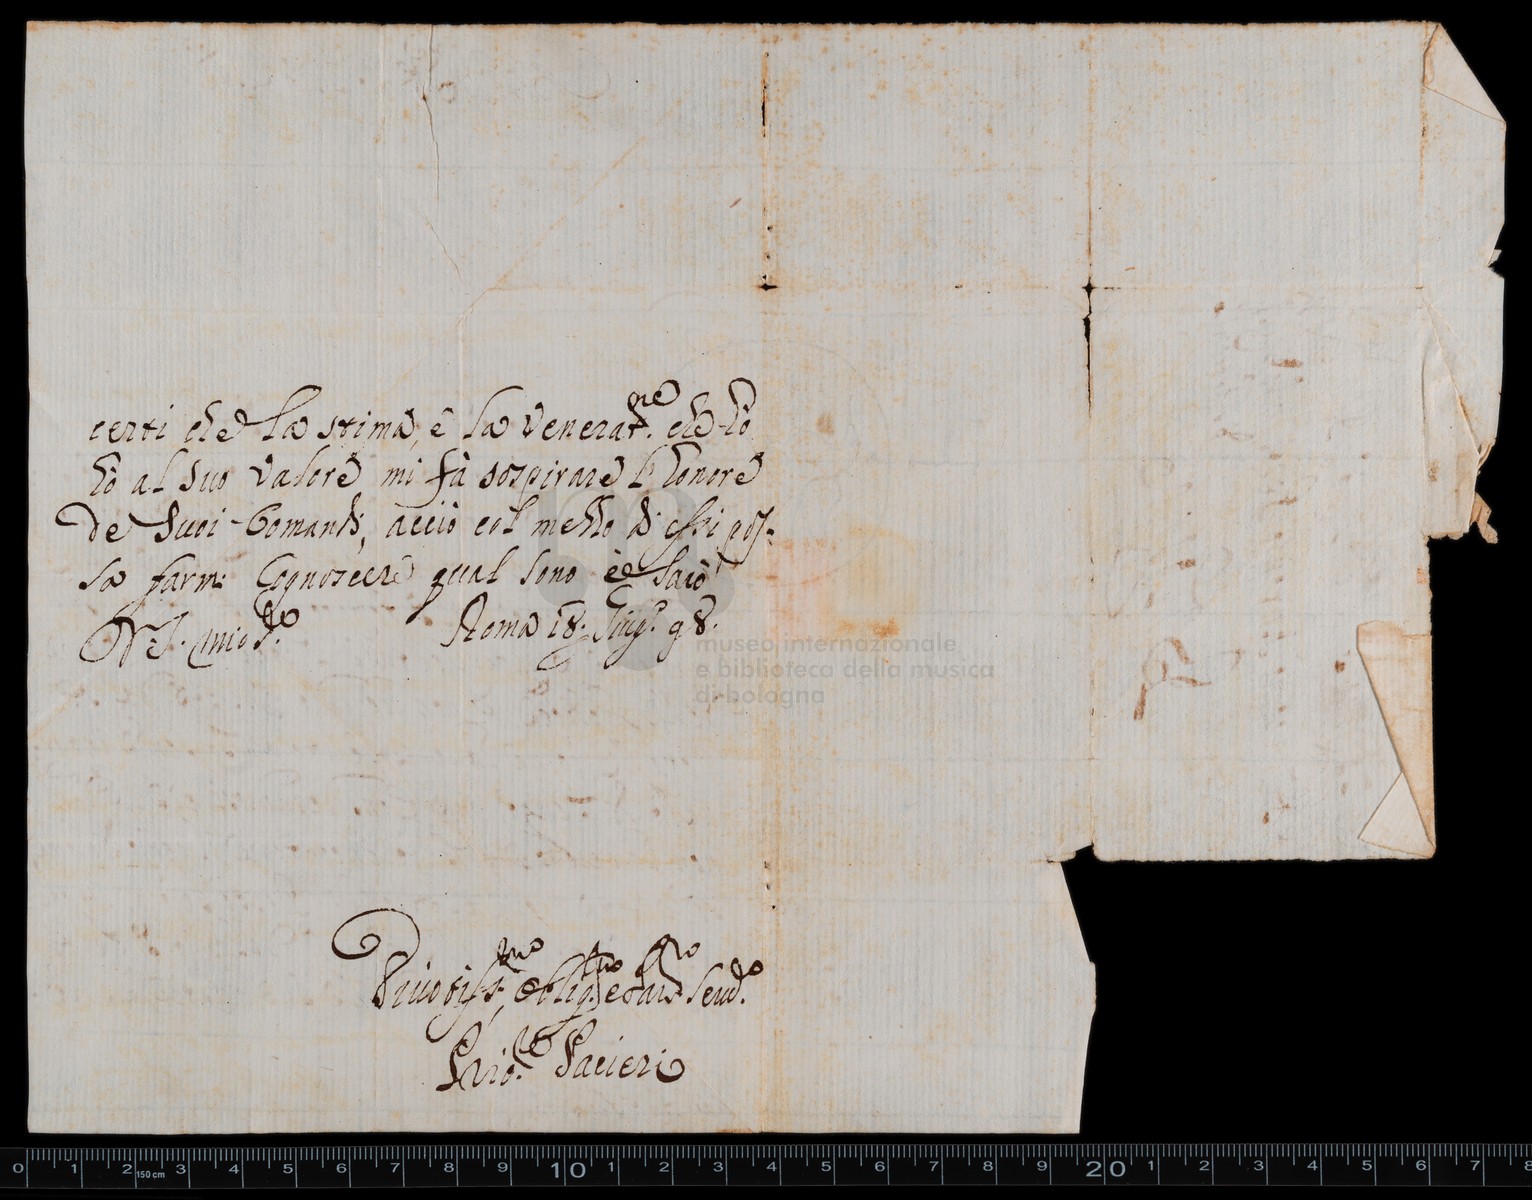 certi che la stima, è la venerat.ne che hò
hò al suo valore mi fà sospirare l'honore
de suoi Comandi, acciò col mezzo di essi pos:
sa farmi Cognoscere qual sono è e sarò
Di V.S. mio S.re Roma 18. Giug.o 98.
museo internazionale
e biblioteca della musica
di bologna
Divotiss.mo, Oblig.mo e Ser.do
Gio: Pacieri
0 1 2 150 cm 3 4 5 6 7 8 9 10 1 2 3 4 5 6 7 8 9 20 1 2 3 4 5 6 7 8